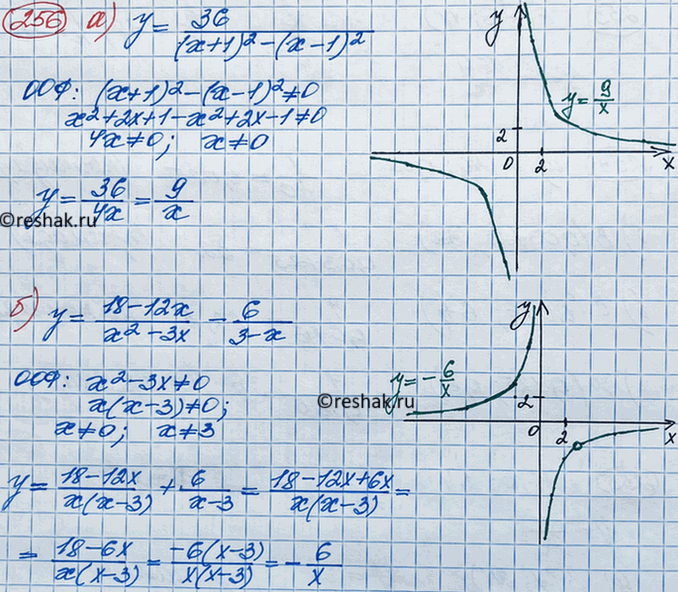 256 а) y = 36 / ((x+1)² − (x−1)²)
ООФ: (x+1)² − (x−1)² ≠ 0
x² + 2x + 1 − x² + 2x − 1 ≠ 0
4x ≠ 0; x ≠ 0
y = 36/4x = 9/x
©reshak.ru
y
y = 9/x
2
0 2 x
б) y = (18 − 12x)/(x² − 3x) − 6/(3 − x)
ООФ: x² − 3x ≠ 0
x(x − 3) ≠ 0;
x ≠ 0; x ≠ 3
y = (18 − 12x)/(x(x − 3)) + 6/(x − 3) = (18 − 12x + 6x)/(x(x − 3)) =
= (18 − 6x)/(x(x − 3)) = −6(x − 3)/(x(x − 3)) = −6/x
y
y = −6/x
©reshak.ru
2
0 2 x